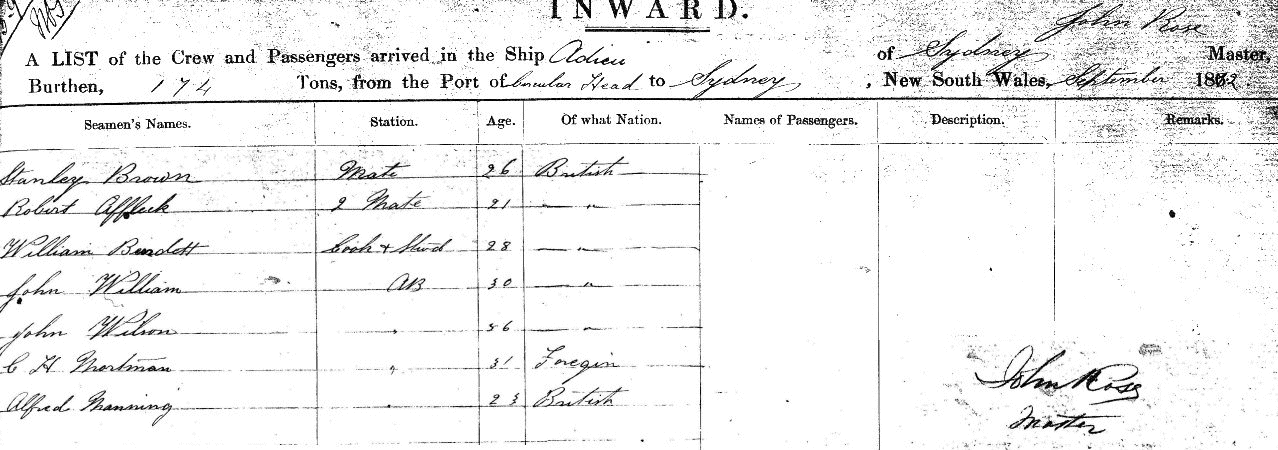 INWARD.
John Rose
A LIST of the Crew and Passengers arrived in the Ship Adieu of Sydney Master,
Burthen, 174 Tons, from the Port of Circular Head to Sydney, New South Wales, September 18
Seamen's Names. Station. Age. Of what Nation. Names of Passengers. Description. Remarks.
Stanley Brown Mate 26 British
Robert Affleck 2 Mate 21 — " —
William Burdett Cook & Stwd 28 — " —
John William AB 30 — " —
John Wilson " 56 — " —
C H " 31 Foregin
Alfred Manning " 23 British
John Rose
Master